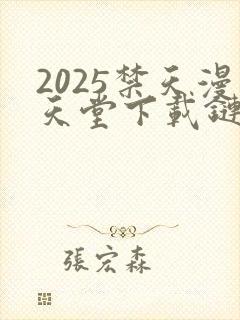 2025禁天漫
天堂下載鏈
張宏森